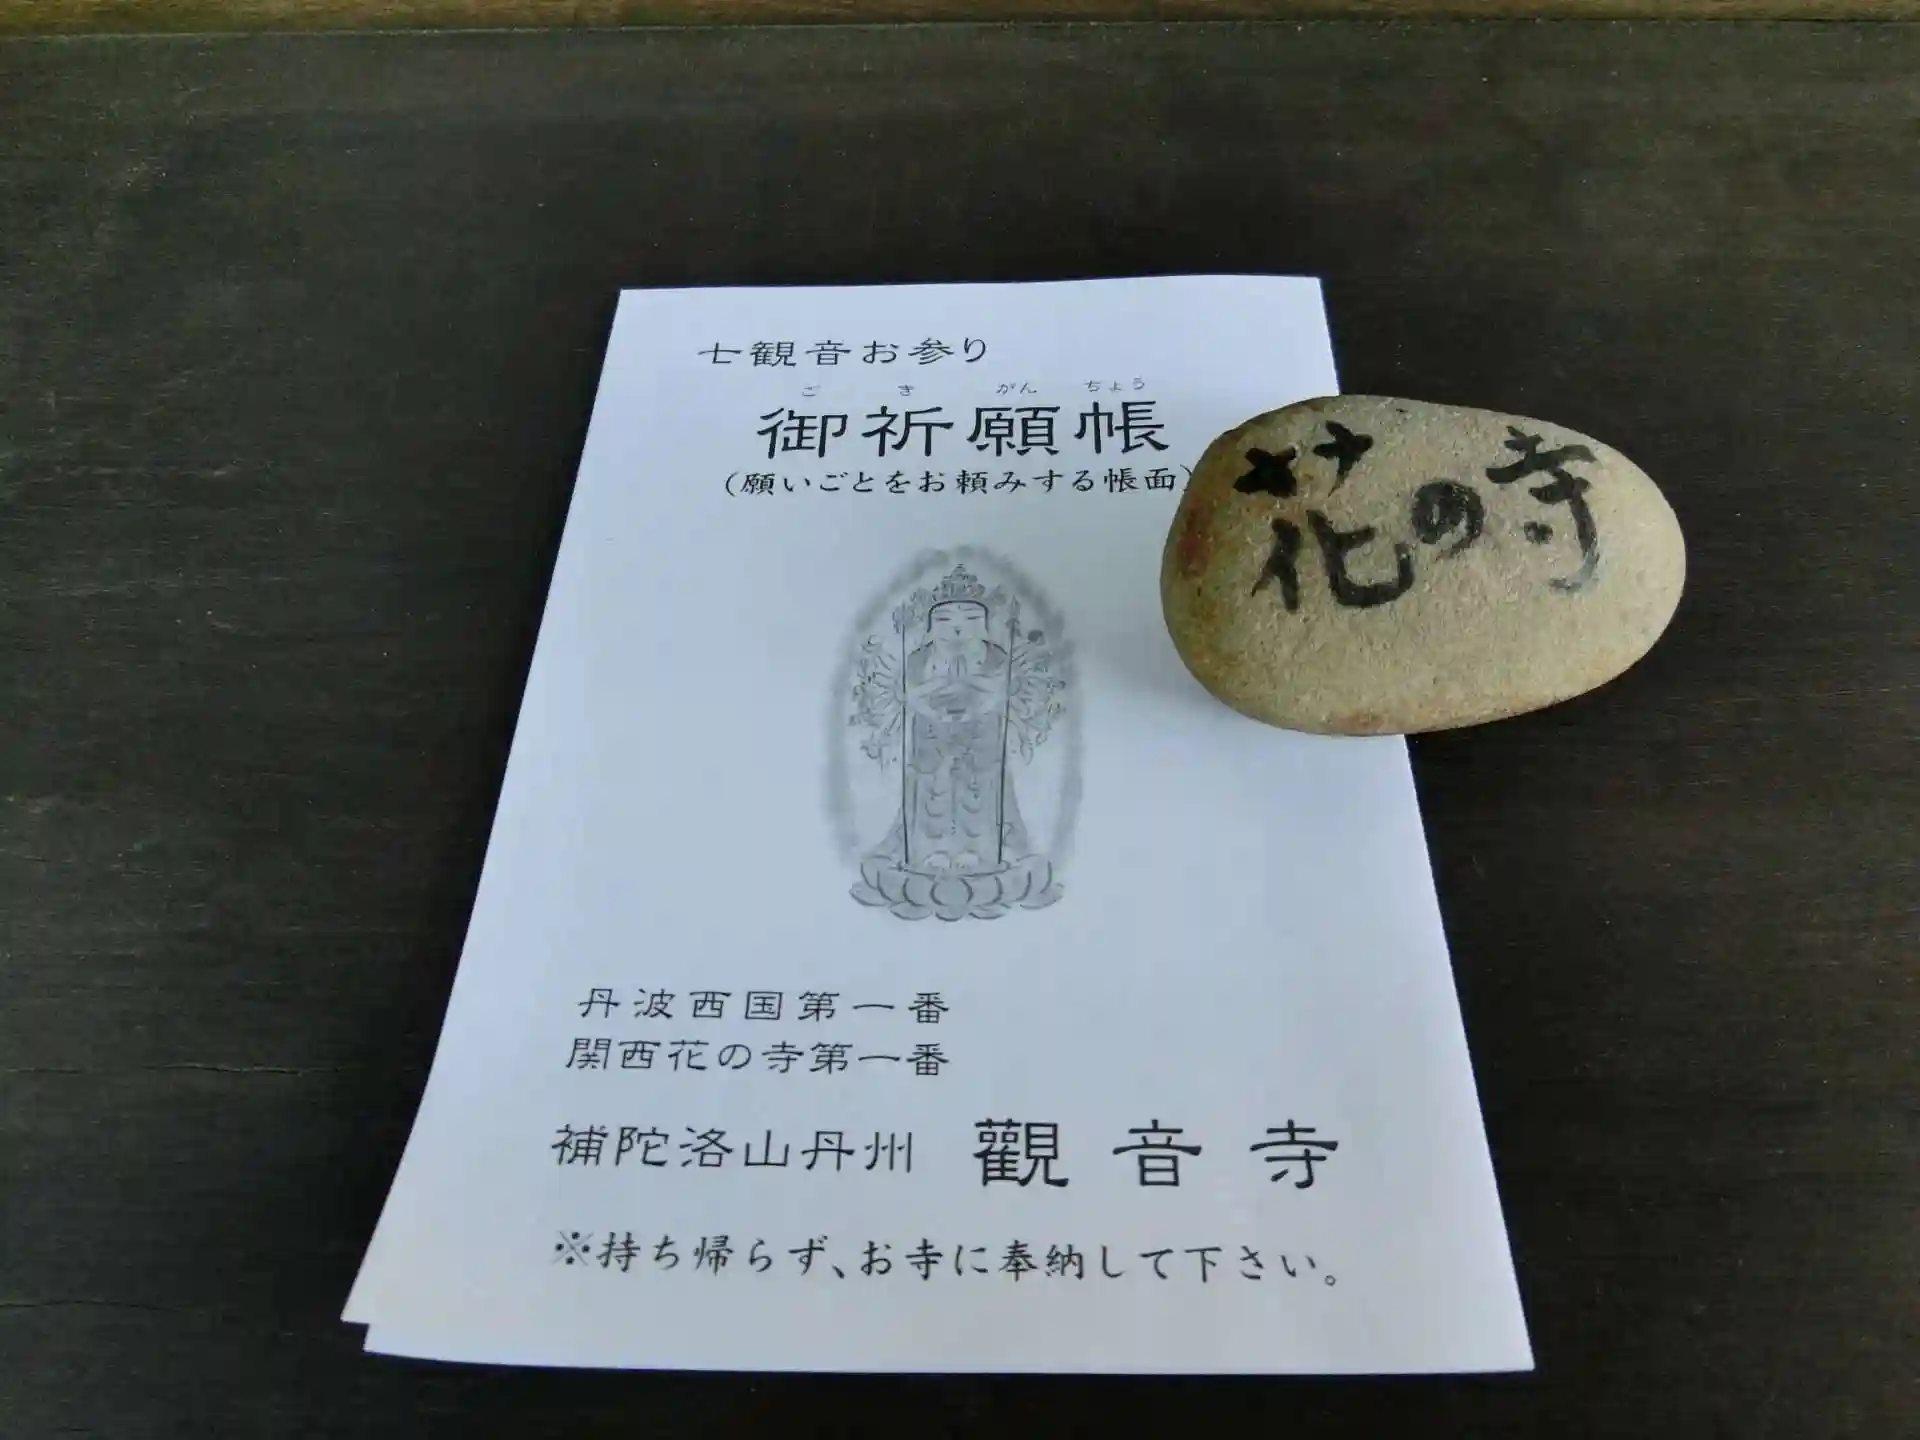 七観音お参り
ご き がん ちょう
御祈願帳
(願いごとをお頼みする帳面)
丹波西国第一番
関西花の寺第一番
補陀洛山丹州 觀音寺
※持ち帰らず、お寺に奉納して下さい。
花の寺